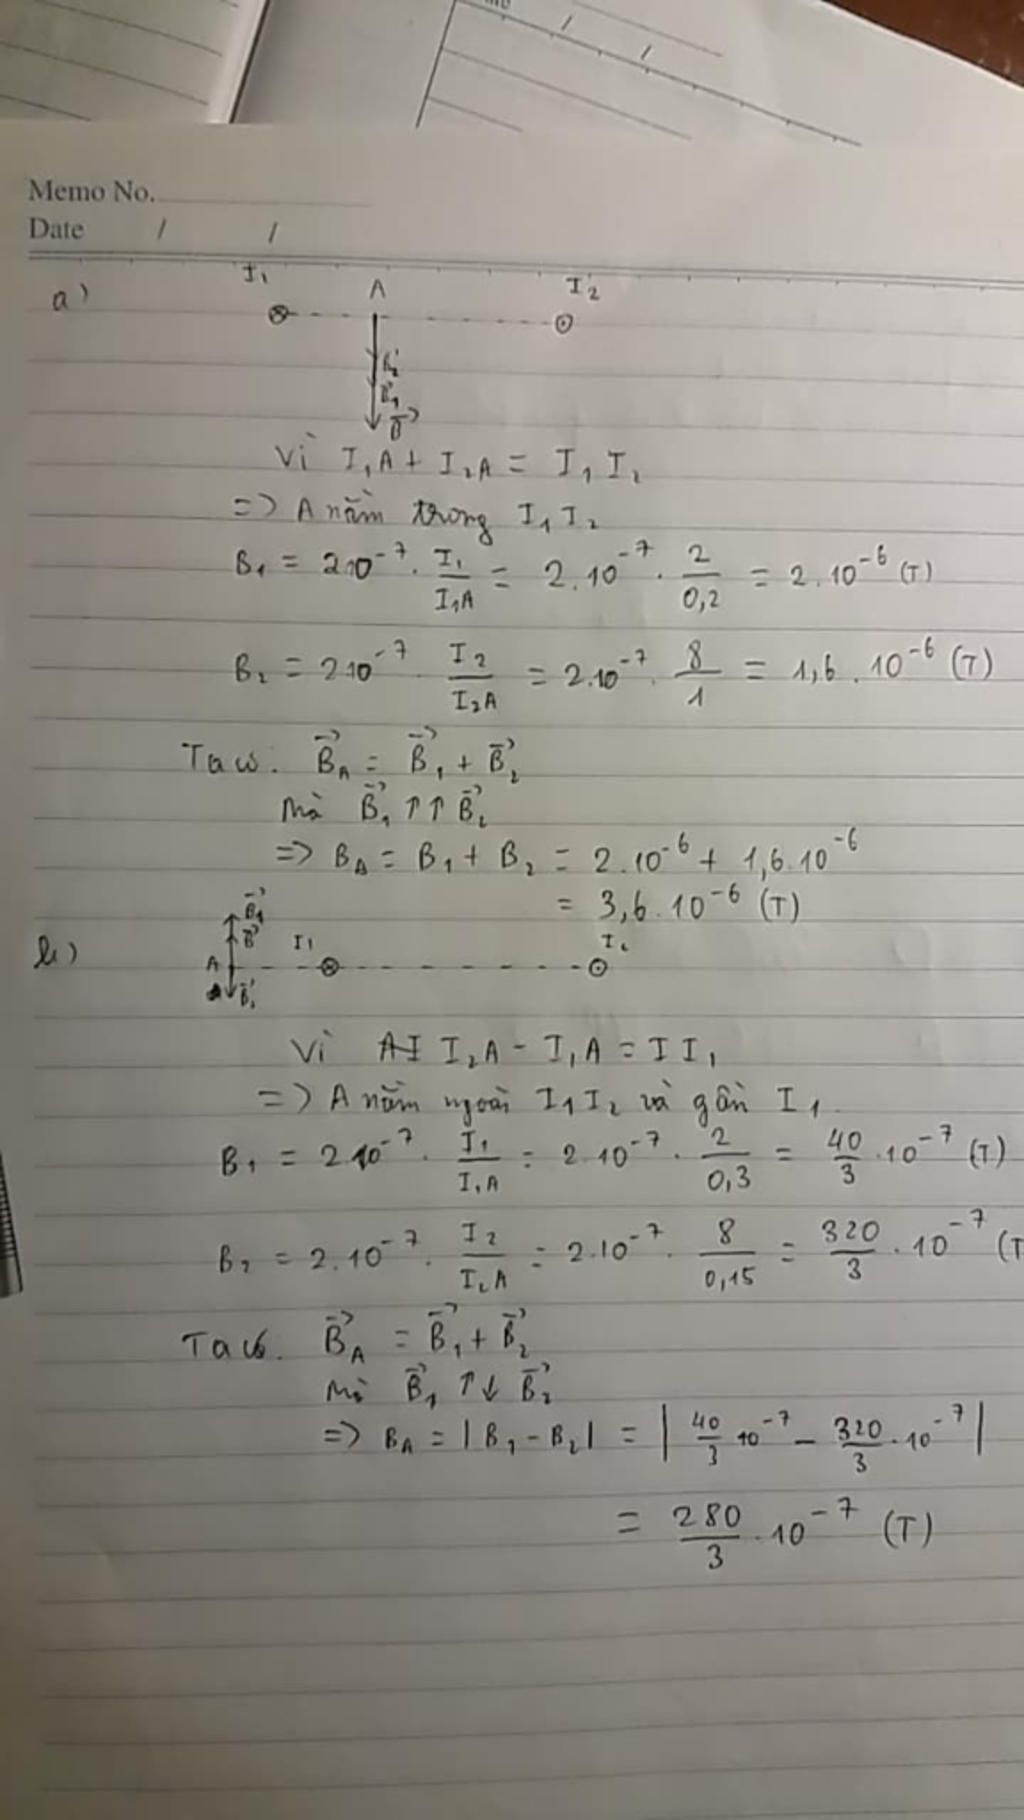 Memo No.
Date / /
a) I₁ A I₂
B₂
B₁
B
Vì I₁A + I₂A = I₁I₂
=> A nằm trong I₁I₂
B₁ = 2.10⁻⁷ . I₁/I₁A = 2.10⁻⁷ . 2/0,2 = 2.10⁻⁶ (T)
B₂ = 2.10⁻⁷ . I₂/I₂A = 2.10⁻⁷ . 8/1 = 1,6.10⁻⁶ (T)
Ta có: B⃗A = B⃗₁ + B⃗₂
Mà B⃗₁ ↑↑ B⃗₂
=> BA = B₁ + B₂ = 2.10⁻⁶ + 1,6.10⁻⁶
= 3,6.10⁻⁶ (T)
B⃗₁
B⃗
b) A I₁ I₂
Vì I₂A - I₁A = II₁
=> A nằm ngoài I₁I₂ và gần I₁.
B₁ = 2.10⁻⁷ . I₁/I₁A = 2.10⁻⁷ . 2/0,3 = 40/3 .10⁻⁷ (T)
B₂ = 2.10⁻⁷ . I₂/I₂A = 2.10⁻⁷ . 8/0,15 = 320/3 . 10⁻⁷ (T
Ta có. B⃗A = B⃗₁ + B⃗₂
Mà B⃗₁ ↑↓ B⃗₂
=> BA = |B₁ - B₂| = |40/3 10⁻⁷ - 320/3 .10⁻⁷|
= 280/3 .10⁻⁷ (T)